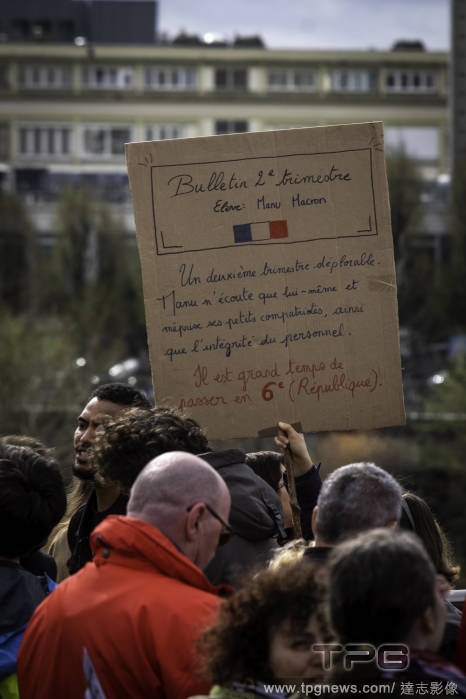 Bulletin 2e trimestre
Elève: Manu Macron
Un deuxième trimestre déplorable.
Manu n'écoute que lui-même et
méprise ses petits compatriotes, ainsi
que l'intégrité du personnel.
Il est grand temps de
passer en 6e (République).
TPG
www.tpgnews.com/ 達志影像